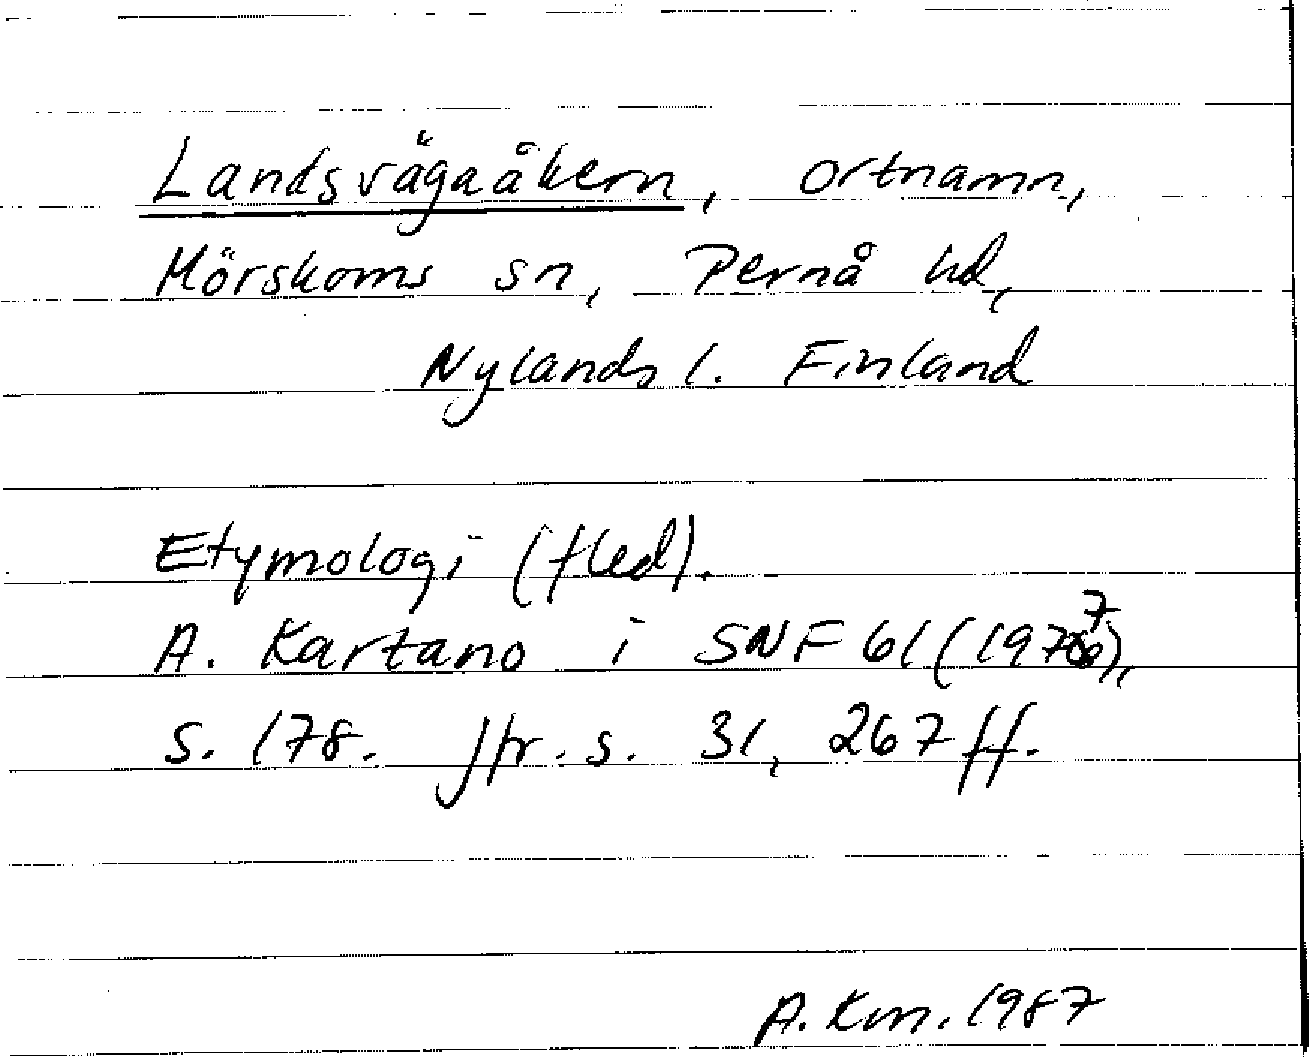 Landsvägaåkern, ortnamn,
Mörskoms sn, Pernå hd,
Nylands l. Finland
Etymologi (fled).
A. Kartano i SNF 61 (1977),
s. 178. Jfr. s. 31, 267 ff.
A. Km. 1987